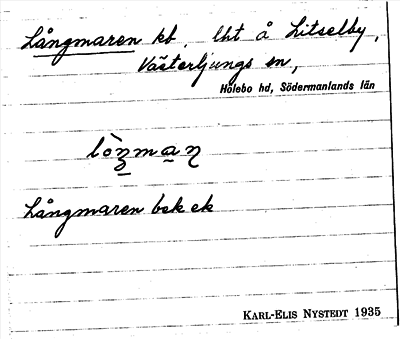 Långmaren kt. lht å Litselby,
Västerljungs sn,
Hölebo hd, Södermanlands län
Långmaren bek ek
KARL-ELIS NYSTEDT 1935